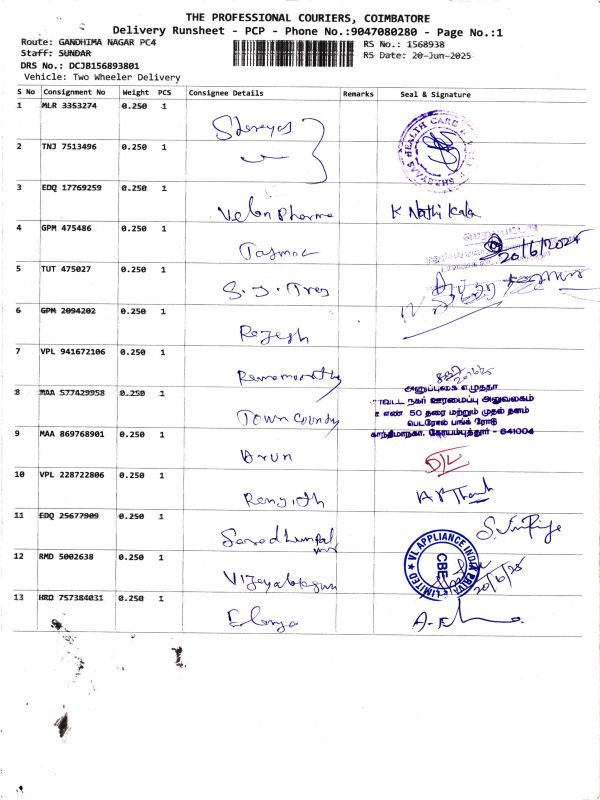 THE PROFESSIONAL COURIERS, COIMBATORE
Delivery Runsheet - PCP - Phone No.:9047080280 - Page No.:1
Route: GANDHIMA NAGAR PC4
RS No.: 1568938
Staff: SUNDAR
RS Date: 20-Jun-2025
DRS No.: DCJB156893801
Vehicle: Two Wheeler Delivery
S No Consignment No Weight PCS Consignee Details Remarks Seal & Signature
1 MLR 3353274 0.250 1 Shreyas
2 TNJ 7513496 0.250 1
3 EDQ 17769259 0.250 1 Velan Pharma K Nathi Kala
4 GPM 475486 0.250 1 Tasmac 20/6/2025
5 TUT 475027 0.250 1
6 GPM 2094202 0.250 1 Rajesh
7 VPL 941672106 0.250 1 Ramamoorthy
8 MAA 577429958 0.250 1 Town County
அனுப்புகை எழுத்தர்
நகர் ஊரமைப்பு அலுவலகம்
எண் 50 தரை மற்றும் முதல் தளம்
பெடரோல் பங்க் ரோடு
காந்திமாநகர், கோயம்புத்தூர் - 641004
9 MAA 869768901 0.250 1 Arun
10 VPL 228722806 0.250 1 Renjith
11 EDQ 25677909 0.250 1
12 RMD 5002638 0.250 1 VL APPLIANCE INDIA LIMITED CBE 20/6/25
13 HRD 757384031 0.250 1